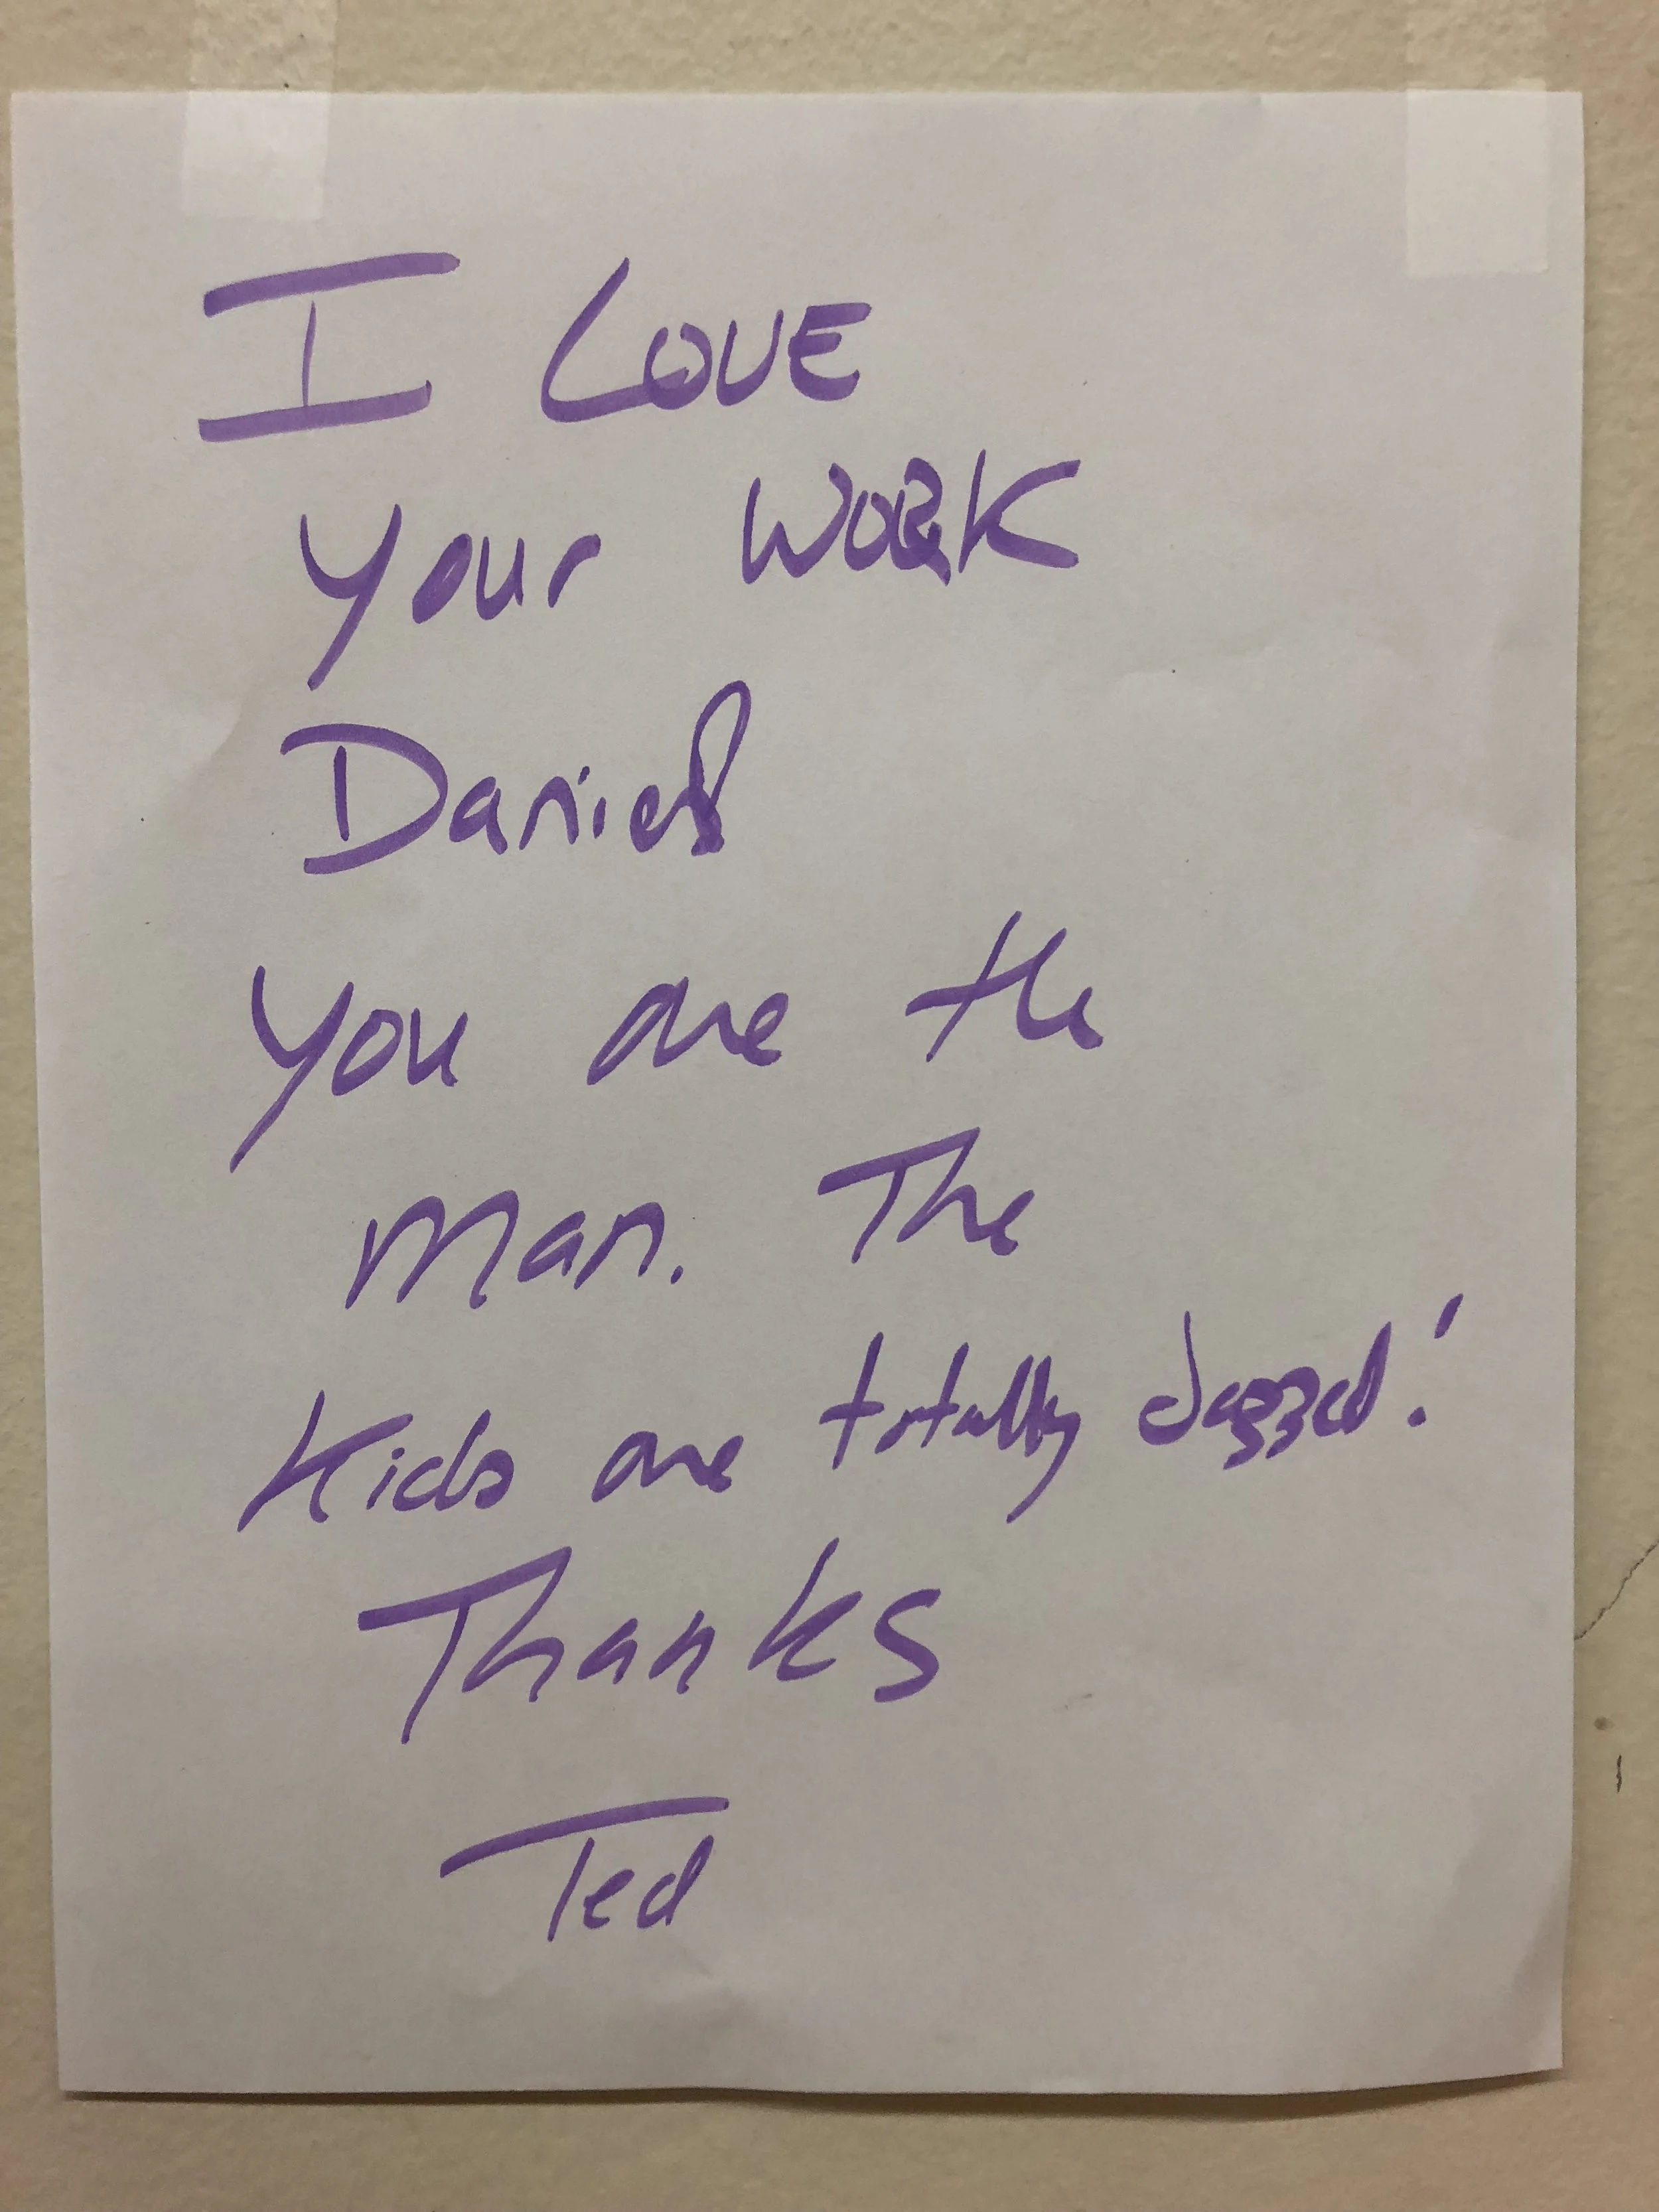 I LOVE
Your WORK
Daniel
You are the
Man. The
Kids are totally dazzed!
Thanks
Ted